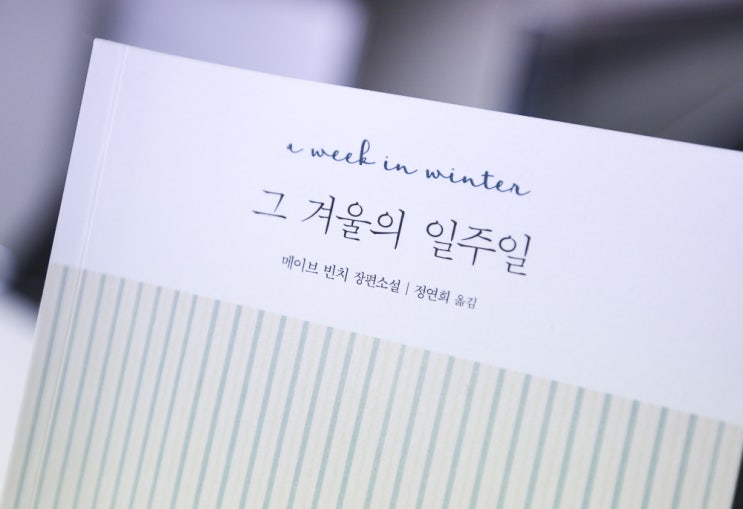 a week in winter
그 겨울의 일주일
메이브 빈치 장편소설 | 정연희 옮김